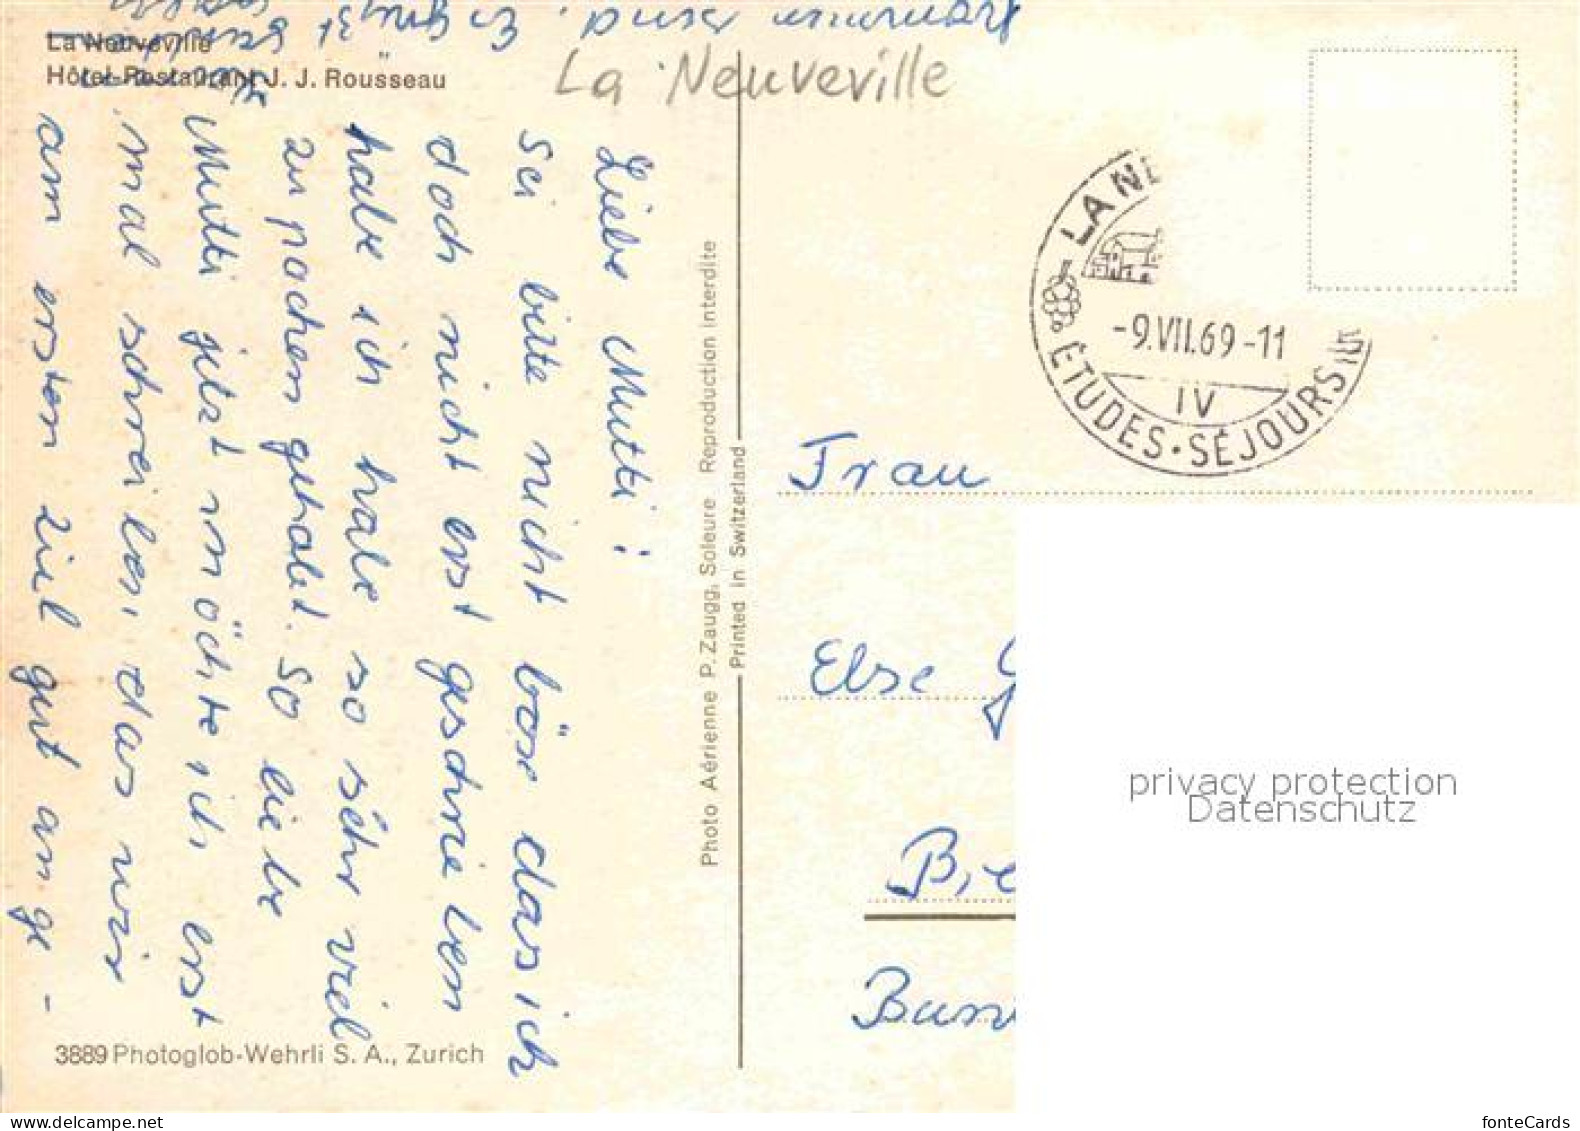 La Neuveville
Hôtel-Restaurant J. J. Rousseau
La Neuveville
Liebe Mutti!
Sei bitte nicht böse das ich
doch nicht erst geschrieben
habe ich habe so sehr viel
zu pachen gehabt. So liebe
Mutti jetzt möchte ich erst
mal schreiben, das wir
am ersten Ziel gut ange-
kommen sind. Es grüßt
LA NE
-9.VII.69-11
IV
ÉTUDES · SÉJOURS
Photo Aérienne P. Zaugg, Soleure Reproduction interdite
Printed in Switzerland
Frau
Else
Bie
3889 Photoglob-Wehrli S. A., Zurich
privacy protection
Datenschutz
fonteCards